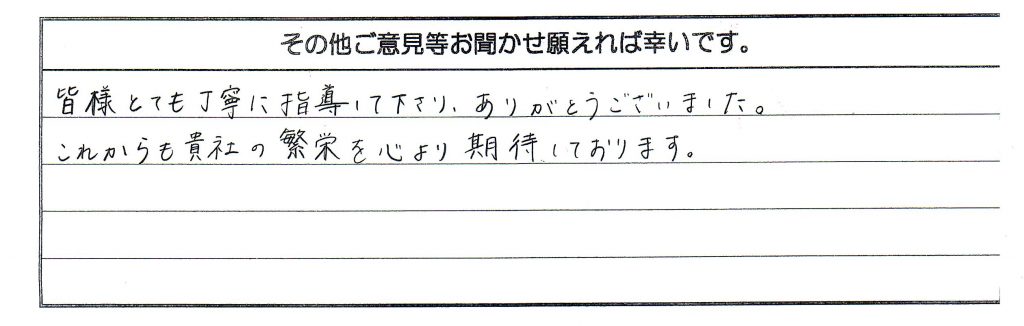 その他ご意見等お聞かせ願えれば幸いです。
皆様とても丁寧に指導して下さり、ありがとうございました。
これからも貴社の繁栄を心より期待しております。